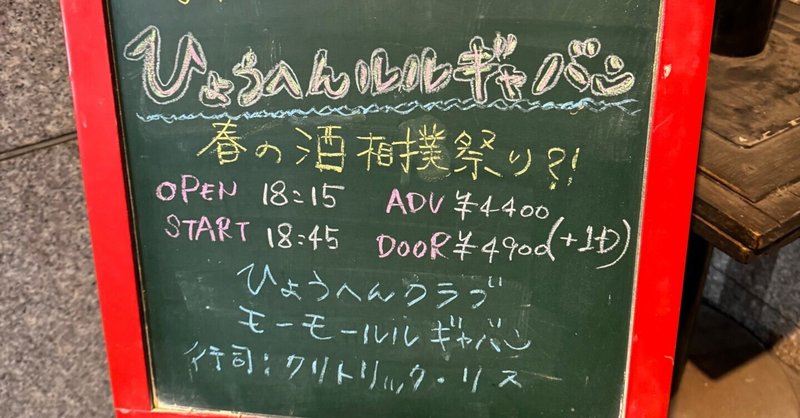 ひょうへんルルギャバン
春の酒相撲祭り?!
OPEN 18:15 ADV ¥4400
START 18:45 DOOR ¥4900(+1D)
ひょうへんクラブ
モーモールルギャバン
行司:クリトリック・リス